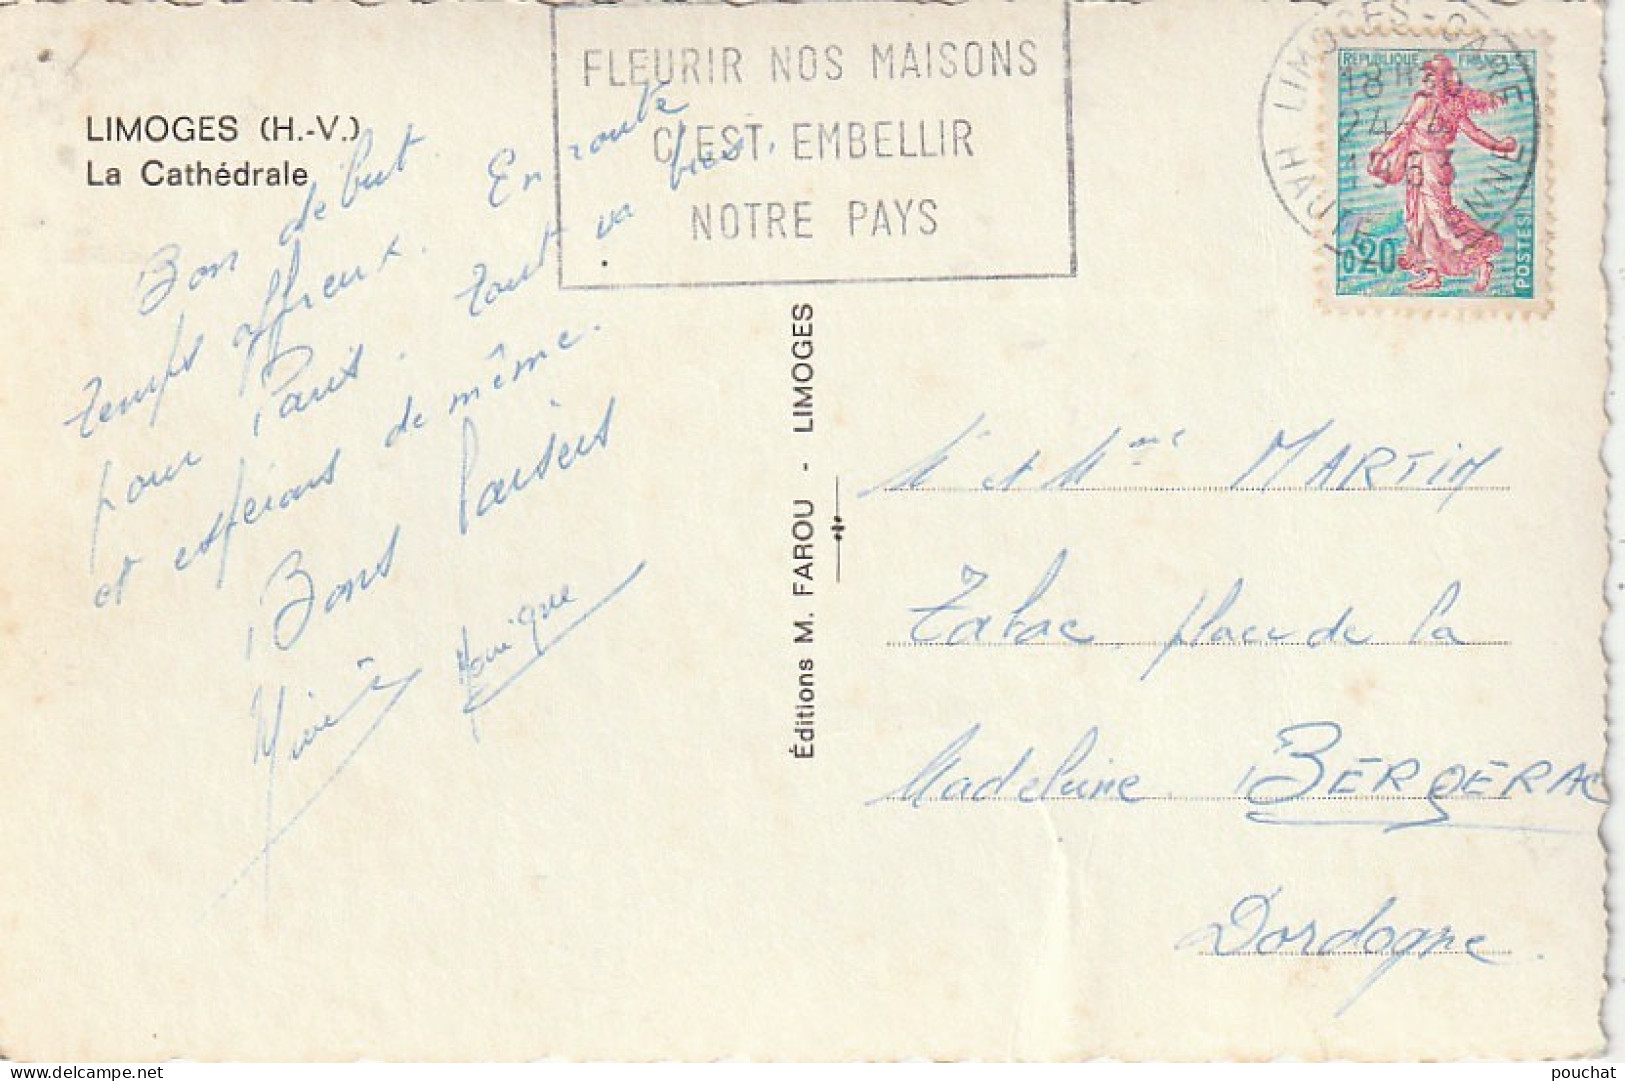 LIMOGES (H.-V.)
La Cathédrale
FLEURIR NOS MAISONS
C'EST EMBELLIR
NOTRE PAYS
LIMOGES-GARE
18H30
24-4
1963
HTE VIENNE
REPUBLIQUE FRANÇAISE
0,20
POSTES
Bon début
temps affreux. En route
pour Paris. tout va bien.
et espérons de même.
Bons baisers
Monique
Éditions M. FAROU - LIMOGES
M et Mme MARTIN
Tabac place de la
Madeleine BERGERAC
Dordogne.
pouchat
delcampe.net